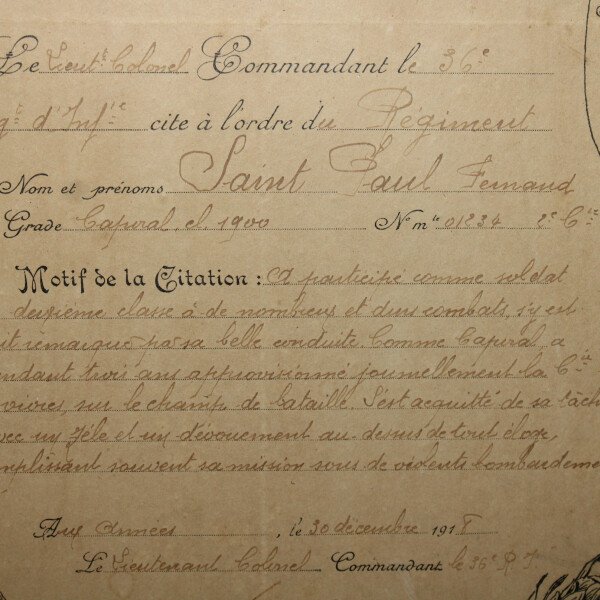 Le Lieut^t Colonel Commandant le 36^e
g^t d'Inf^ie cite à l'ordre du Régiment
Nom et prénoms Saint Paul Fernand
Grade Caporal, cl. 1900 N° m^le 01234 2^e C^ie
Motif de la Citation : A participé comme soldat
deuxième classe à de nombreux et durs combats, s'y est
it remarqué par sa belle conduite Comme Caporal, a
endant trois ans approvisionné journellement la C^ie
vivres, sur le champ de bataille. S'est acquitté de sa tâch
vec un zèle et un dévouement au dessus de tout éloge,
mplissant souvent sa mission sous de violents bombardeme
Aux Armées , le 30 décembre 1918
Le Lieutenant Colonel Commandant le 36^e R.I.